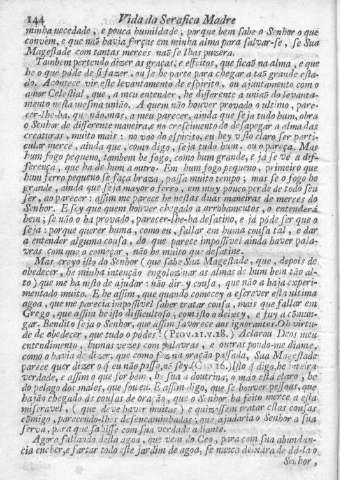 144 Vida da Serafica Madre
minha necedade, e pouca humildade; porque bem sabe o Senhor o que
convém, e que naõ havia forças em minha alma para salvar-se, se Sua
Magestade com tantas mercés naõ se lhas puzera.
Tambem pertendo dizer as graças, e effeitos, que ficaõ na alma, e que
he o que póde de si fazer, ou se he parte para chegar a taõ grande esta-
do. Acontece vir este levantamento de espirito, ou ajuntamento com o
amor Celestial, que, a meu entender, he differente a uniaõ do levanta-
mento nesta mesma uniaõ. A quem naõ houver provado o ultimo, pare-
cer-lhe-ha, que naõ; mas, a meu parecer, ainda que seja tudo hum, obra
o Senhor de differente maneira, e no crescimento do desapegar a alma das
creaturas, muito mais no voo do espirito, eu hey visto claro ser parti-
cular mercé, ainda que, como digo, seja tudo hum, ou o pareça. Mas
hum fogo pequeno, tambem he fogo, como hum grande, e já se vê a dif-
ferença, que ha de hum a outro. Em hum fogo pequeno, primeiro que
hum ferro pequeno se faça braza, passa muito tempo; mas se o fogo he
grande, ainda que seja mayor o ferro, em muy pouco perde de todo seu
ser, ao parecer: assim me parece he nestas duas maneiras de mercés do
Senhor. E sey que quem houver chegado a arrobamentos, o entenderá
bem; se naõ o ha provado, parecer-lhe-ha desatino, e já póde ser que o
seja: porque querer huma, como eu, fallar em huma cousa tal, e dar
a entender alguma cousa, do que parece impossivel ainda haver pala-
vras com que o começar, naõ he muito que desatine.
Mas creyo isto do Senhor (que sabe Sua Magestade, que, depois de
obedecer, he minha intençaõ engolosinar as almas de hum bem taõ al-
to) que me ha nisto de ajudar: naõ direy cousa, que naõ a haja experi-
mentado muito. E he assim, que quando comecey a escrever esta ultima
agoa, que me parecia impossivel saber tratar cousa, mais que fallar em
Grego, que assim he isto difficultoso; com isto o deixey, e fuy a cõmun-
gar. Bendito seja o Senhor, que assim favorece aos ignorantes. Oh virtu-
de de obedecer, que tudo o pódes! (Prov. 21. v. 28.) Aclarou Deos meu
entendimento, humas vezes com palavras, e outras pondo-me diante,
como o havia de dizer, que como fez na oraçaõ passada, Sua Magestade
parece quer dizer o que eu naõ posso, nem sey. Isto, que digo, he inteira
verdade, e assim o que for bom, he sua a doutrina; o máo está claro, he
do pelago dos males, que sou eu. E assim digo, que se houver pessoas, que
hajaõ chegado ás cousas de oraçaõ, que o Senhor ha feito mercé a esta
miseravel, (que deve haver muitas) e quizessem tratar estas cousas
cõmigo, parecendo-lhes desencaminhadas, que ajudaria o Senhor a sua
serva, para que sahisse com sua verdade adiante.
Agora fallando desta agoa, que vem do Ceo, para com sua abundan-
cia encher, e fartar todo este jardim de agoa, se nunca deixára de dá-la o
Senhor,